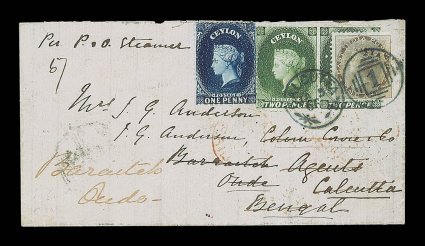 Per P & O. Steamer
5/
CEYLON
POSTAGE
ONE PENNY
CEYLON
POSTAGE
TWO PENCE
TWO PENCE
1
Mrs J. G. Anderson
J. G. Anderson, Colum Grove & Co
Baraitch Agents
Oude Calcutta
Bengal
Baraitch
Oude